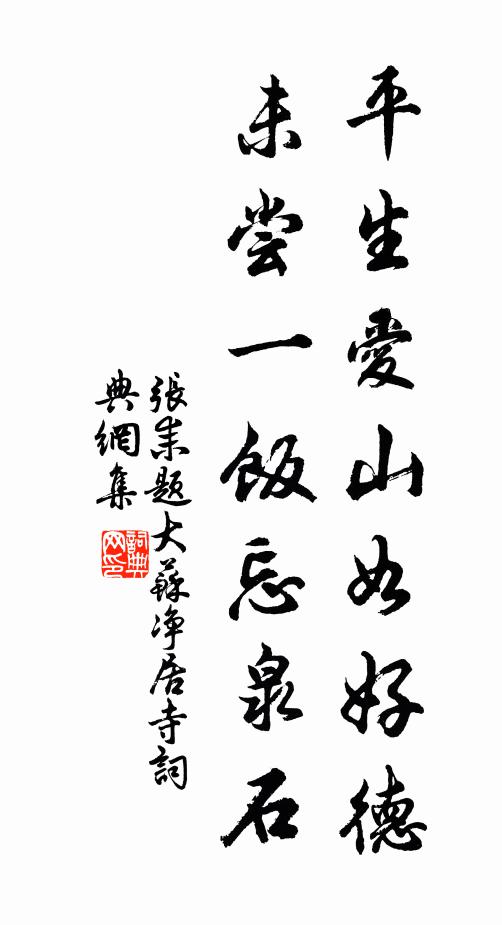 平生愛山如好德
未尝一飯忘泉石
張耒題大蘇净居寺詞
典網集
詞典
网印